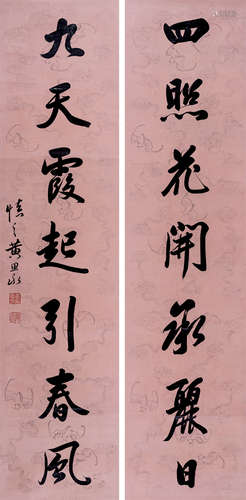 四照花開承麗日
九天霞起引春風
慎之黄思永